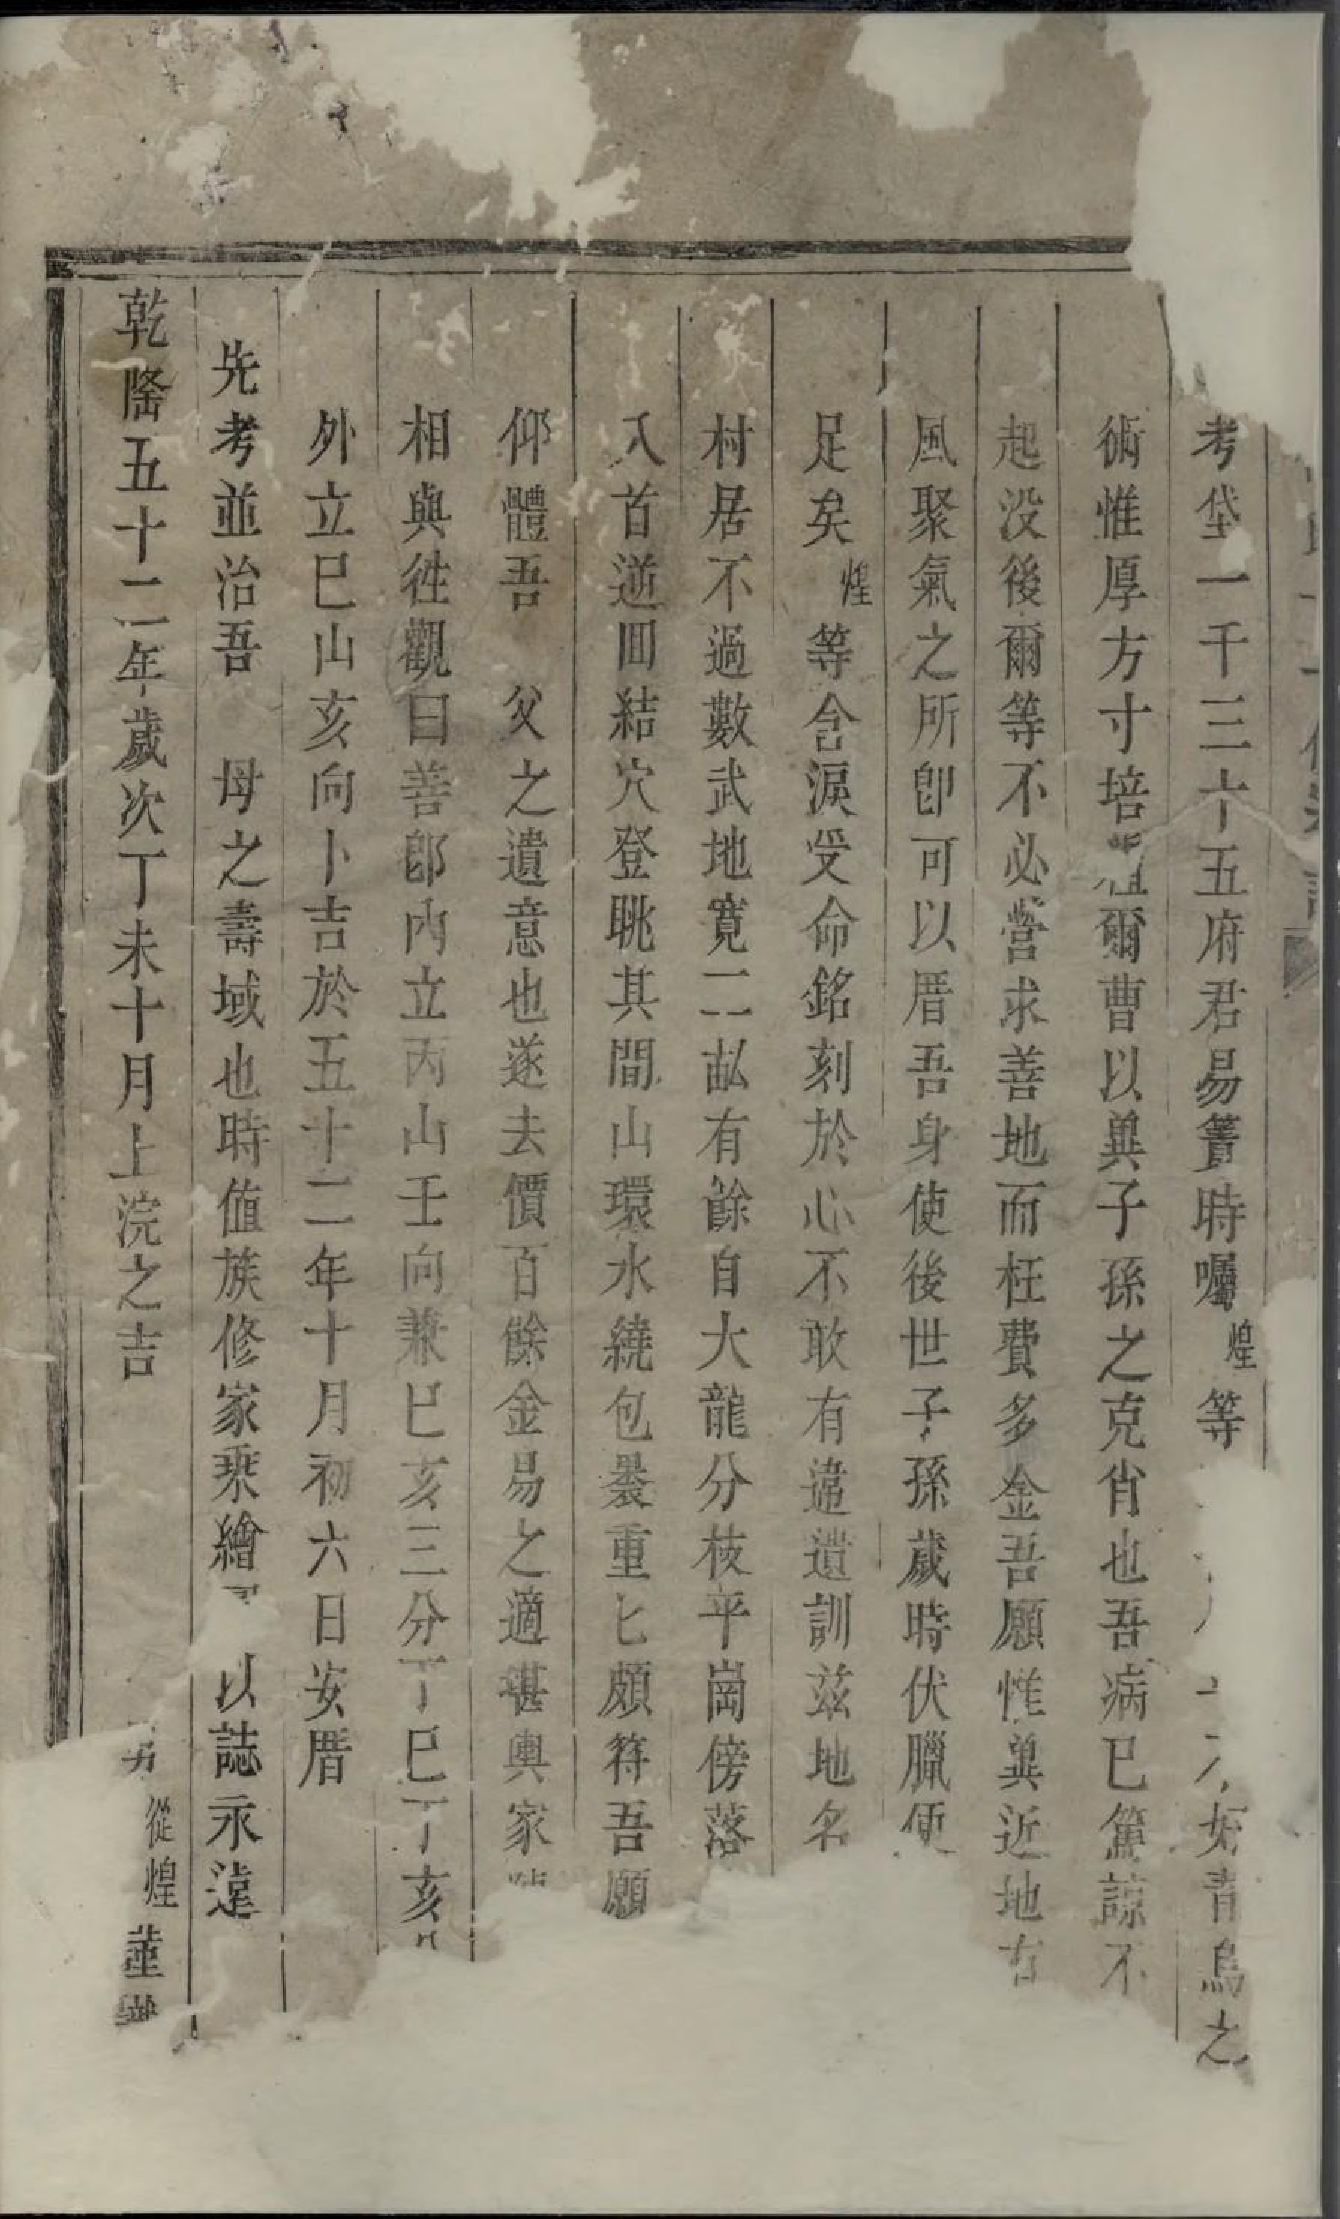 考垡一千三十五府君易簀時囑煌等不好青烏之
術惟厚方寸培植爾曹以冀子孫之克肖也吾病已篤諒不
起没後爾等不必營求善地而枉費多金吾願惟冀近地有
風聚氣之所卽可以厝吾身使後世子孫歲時伏臘便
足矣煌等含淚受命銘刻於心不敢有違遺訓兹地名
村居不過數武地寛二畝有餘自大龍分枝平崗傍落
入首逆囬結穴登眺其間山環水繞包裹重匕頗符吾願
仰體吾父之遺意也遂去價百餘金易之適堪輿家
相與徃觀曰善卽内立丙山壬向兼巳亥三分丁巳丁亥
外立巳山亥向卜吉於五十二年十月初六日安厝
先考並治吾母之壽域也時值族修家乘繪以誌永遠
乾隆五十二年歲次丁未十月上浣之吉男從煌謹